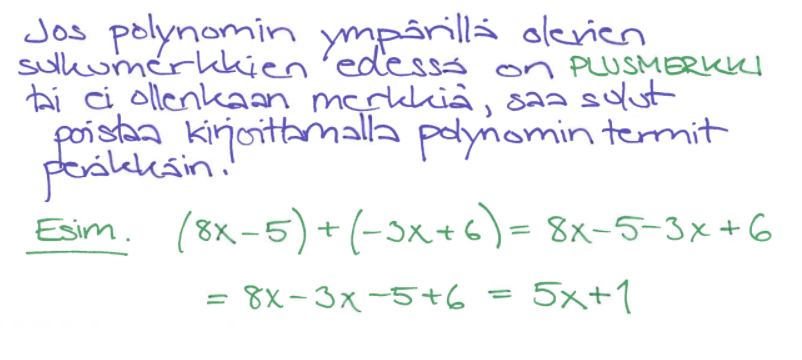 Jos polynomin ympärillä olevien
sulkumerkkien edessä on PLUSMERKKI
tai ei ollenkaan merkkiä, saa sulut
poistaa kirjoittamalla polynomin termit
peräkkäin.
Esim. (8x-5)+(-3x+6) = 8x-5-3x+6
= 8x-3x-5+6 = 5x+1